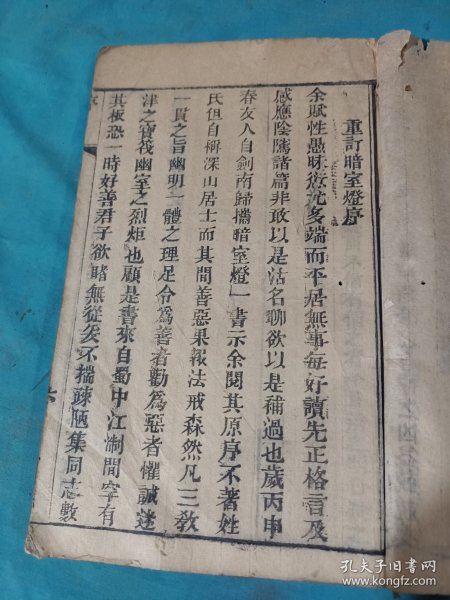 重訂暗室燈序
余賦性愚昧愆尤多端而平居無事每好讀先正格言及
感應陰隲諸篇非敢以是沽名聊欲以是補過也歲丙申
春友人自劍南歸攜暗室燈一書示余閱其原序不著姓
氏但自稱深山居士而其間善惡果報法戒森然凡三敎
一貫之旨幽明一體之理足令爲善者勸爲惡者懼誠迷
津之寶筏幽室之烈炬也顧是書來自蜀中江淛間罕有
其板恐一時好善君子欲睹無從矣不揣疎陋集同志數
序
孔夫子旧书网
www.kongfz.com